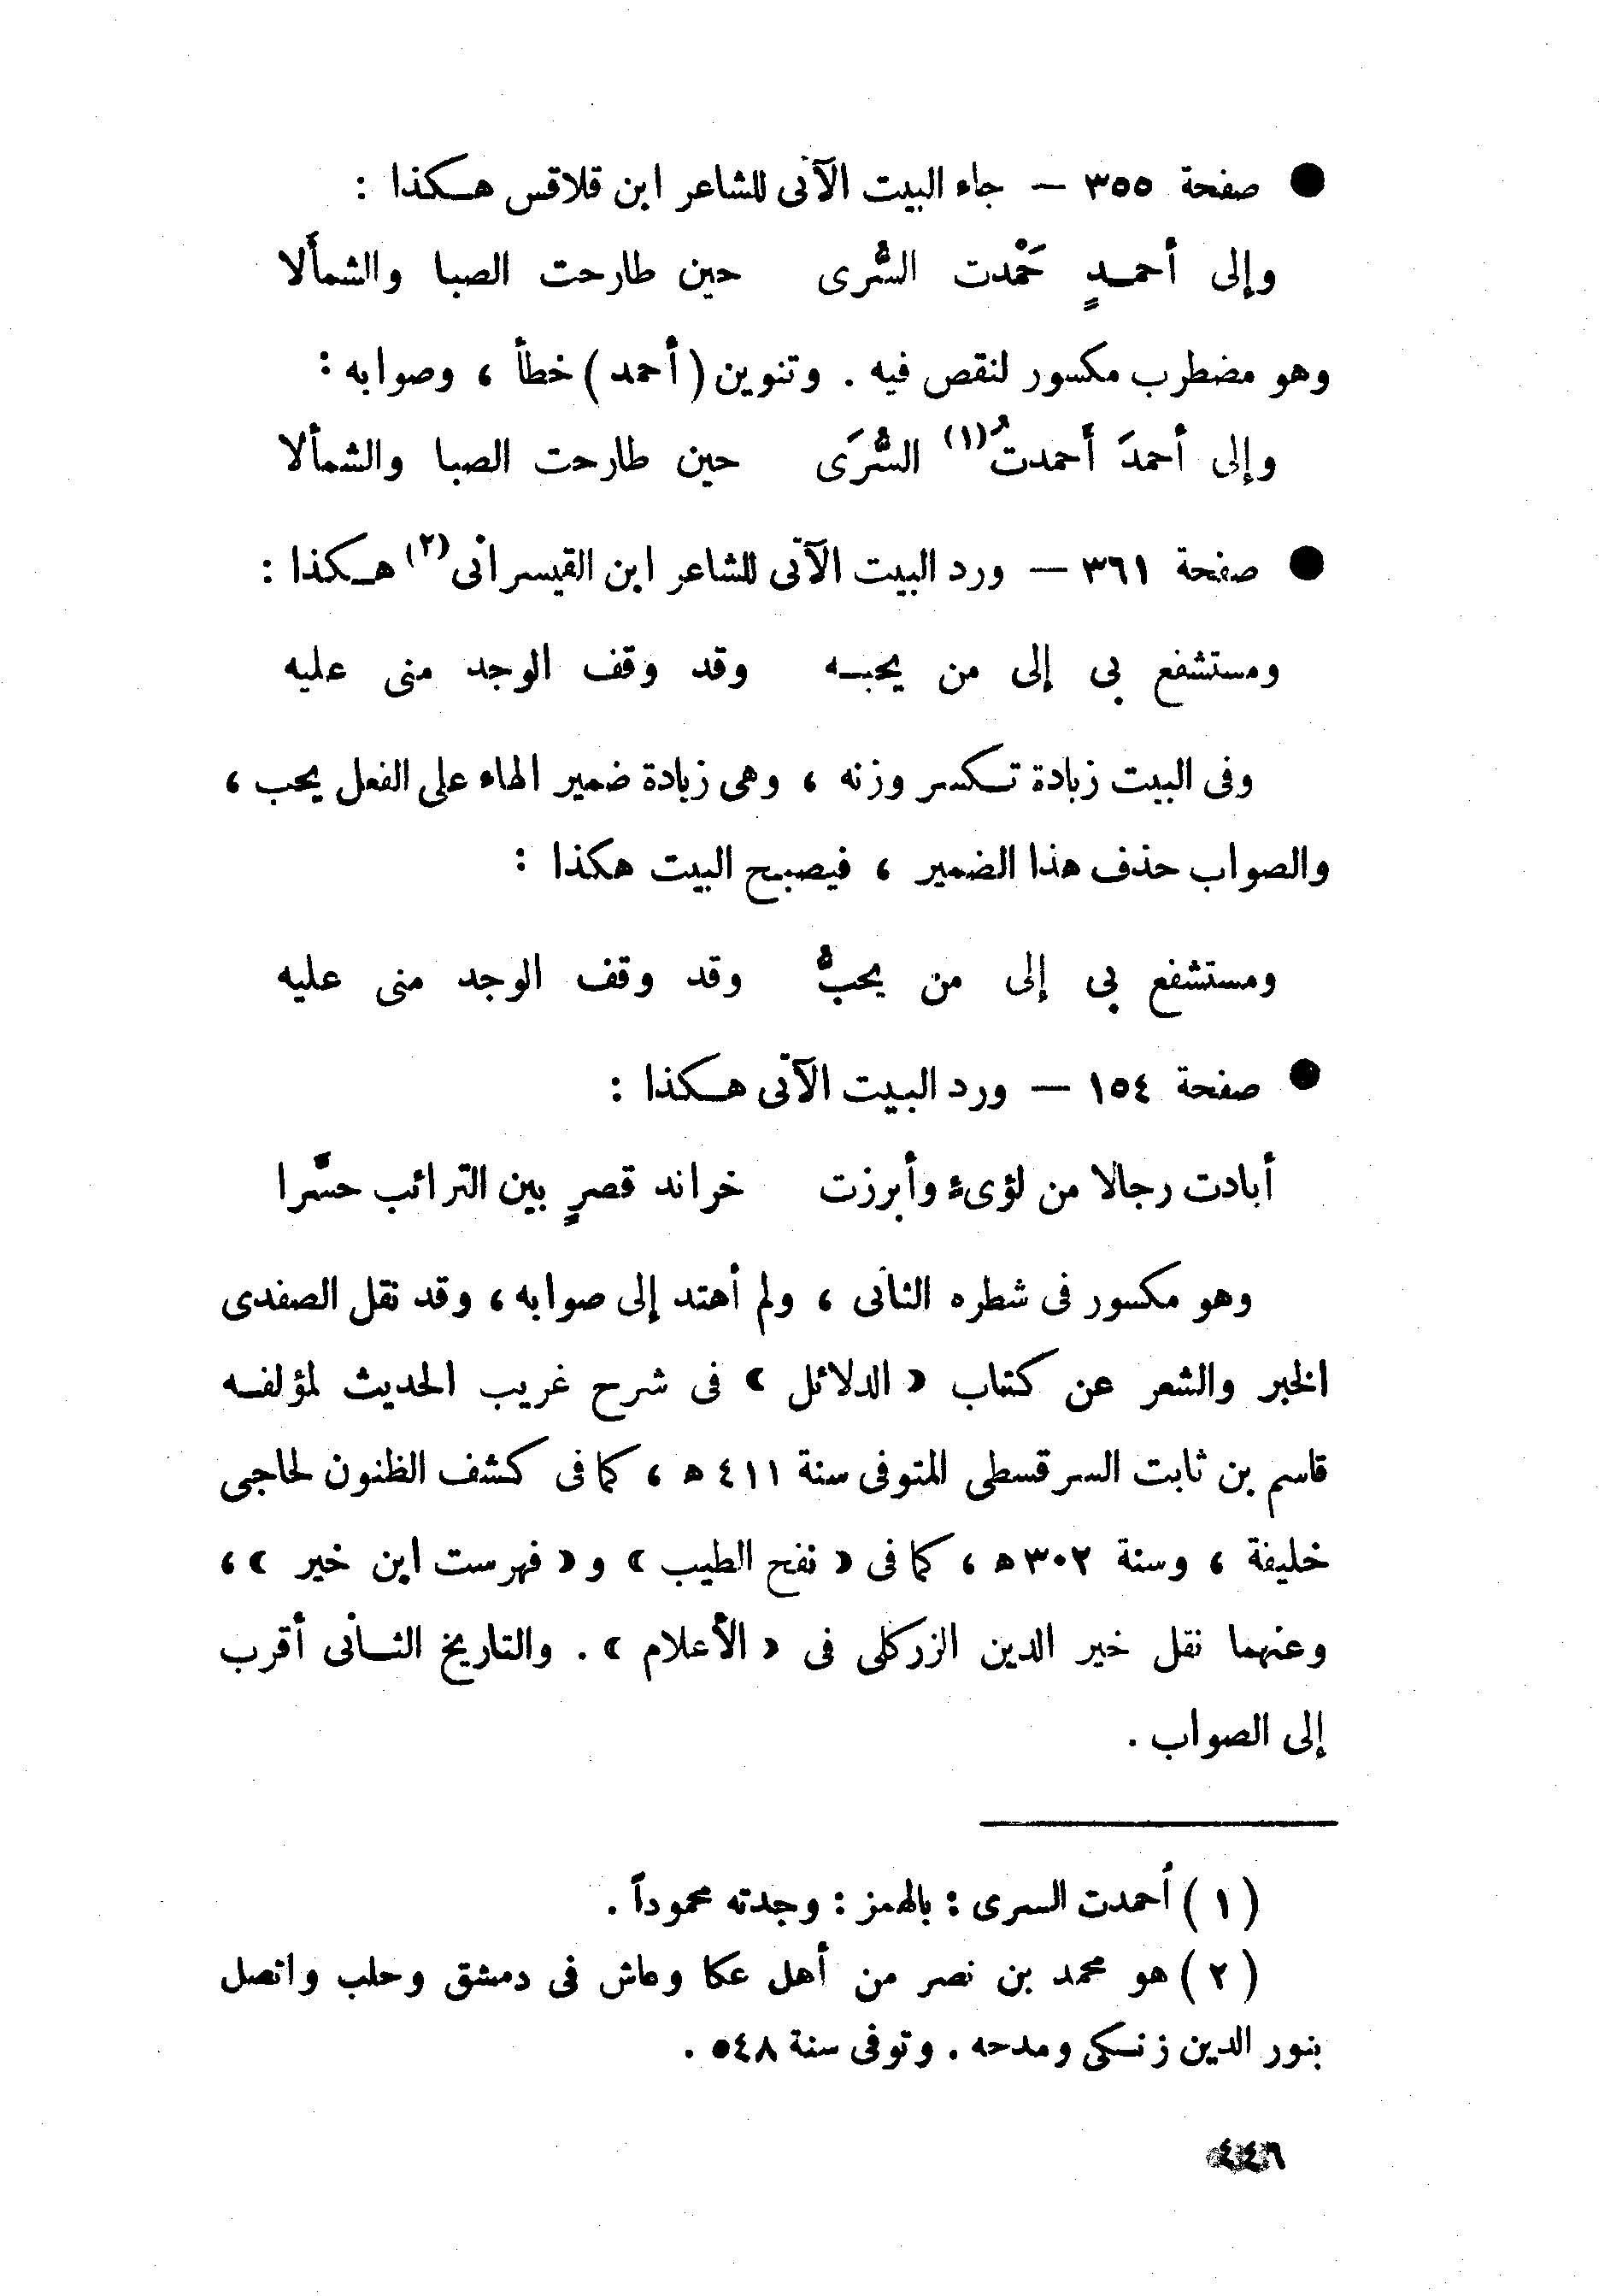 ● صفحة ٣٥٥ — جاء البيت الآتى للشاعر ابن قلاقس هكذا :
وإلى أحمدٍ حَمْدت السُّرى حين طارحت الصبا والشمألا
وهو مضطرب مكسور لنقص فيه . وتنوين (أحمد) خطأ ، وصوابه :
وإلى أحمدَ أَحمدتُ(١) السُّرَى حين طارحت الصبا والشمألا
● صفحة ٣٦١ — ورد البيت الآتى للشاعر ابن القيسرانى(٢) هكذا :
ومستشفع بى إلى من يحبه وقد وقف الوجد منى عليه
وفى البيت زيادة تكسر وزنه ، وهى زيادة ضمير الهاء على الفعل يحب ،
والصواب حذف هذا الضمير ، فيصبح البيت هكذا :
ومستشفع بى إلى من يحبُّ وقد وقف الوجد منى عليه
● صفحة ١٥٤ — ورد البيت الآتى هكذا :
أبادت رجالا من لؤىء وأبرزت خراند قصرٍ بين الترائب حسَّرا
وهو مكسور فى شطره الثانى ، ولم أهتد إلى صوابه ، وقد نقل الصفدى
الخبر والشعر عن كتاب « الدلائل » فى شرح غريب الحديث لمؤلفه
قاسم بن ثابت السرقسطى المتوفى سنة ٤١١ ه ، كما فى كشف الظنون لحاجى
خليفة ، وسنة ٣٠٢ ه ، كما فى « نفح الطيب » و « فهرست ابن خير » ،
وعنهما نقل خير الدين الزركلى فى « الأعلام » . والتاريخ الثانى أقرب
إلى الصواب .
(١) أحمدت السرى : بالهمز : وجدته محموداً .
(٢) هو محمد بن نصر من أهل عكا وعاش فى دمشق وحلب واتصل
بنور الدين زنكى ومدحه . وتوفى سنة ٥٤٨ .
٤٤٦